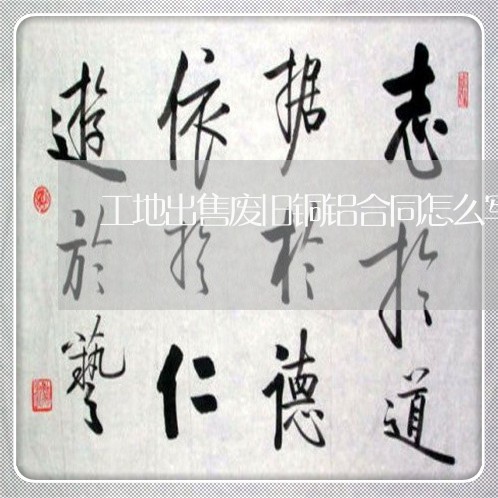 志於道
据於德
依於仁
遊於藝
工地出售废旧铜铝合同怎么写